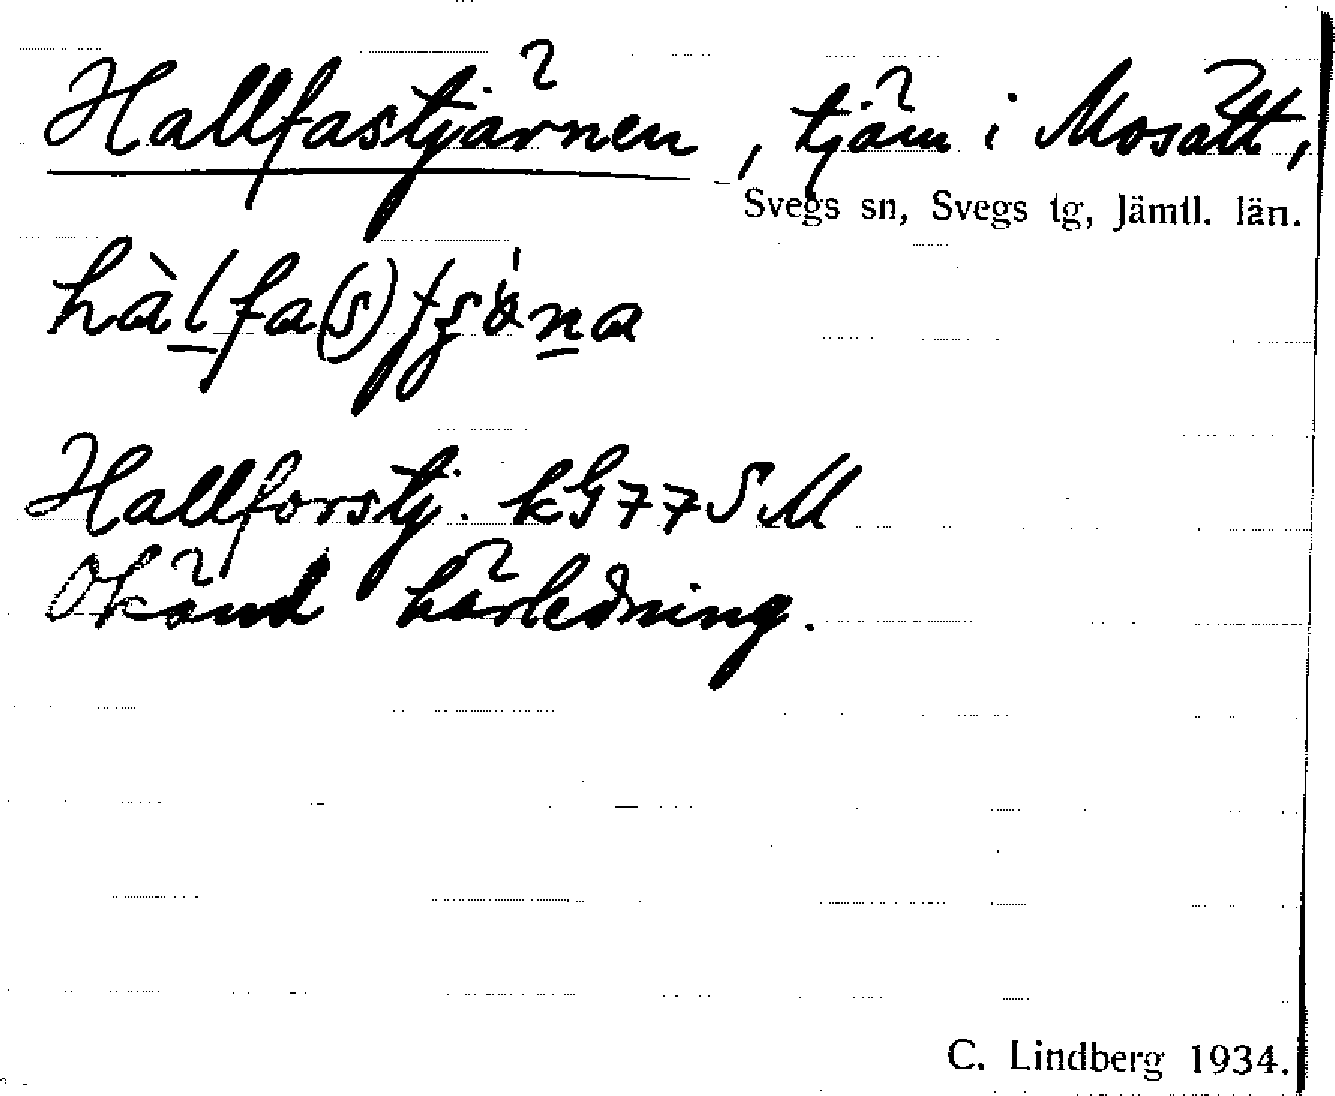 Hallfastjärnen, tjärn i Mosätt,
Svegs sn, Svegs tg, Jämtl. län.
Hallforstj. kG77SM
Okänd härledning.
C. Lindberg 1934.